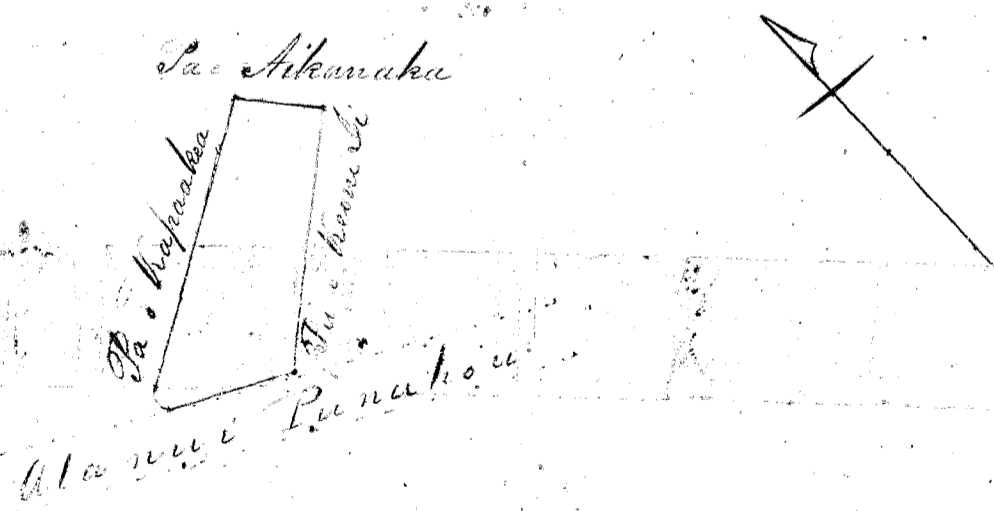 Pa Aikanaka
Pa o Kapaakea
Pa o Keoni
Alanui Punahou